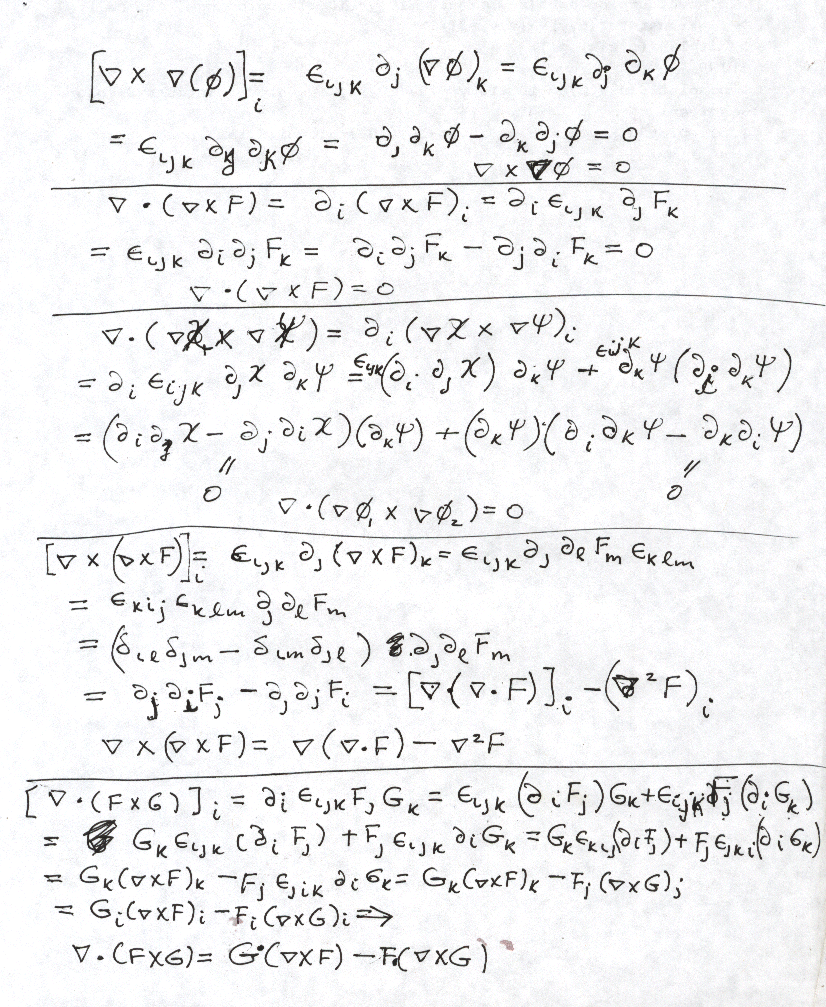 [∇ × ∇(ϕ)]ᵢ = ϵᵢⱼₖ ∂ⱼ (∇ϕ)ₖ = ϵᵢⱼₖ ∂ⱼ ∂ₖϕ
= ϵᵢⱼₖ ∂ⱼ ∂ₖϕ = ∂ⱼ∂ₖϕ − ∂ₖ∂ⱼϕ = 0
∇ × ∇ϕ = 0
∇ · (∇×F) = ∂ᵢ(∇×F)ᵢ = ∂ᵢ ϵᵢⱼₖ ∂ⱼ Fₖ
= ϵᵢⱼₖ ∂ᵢ∂ⱼFₖ = ∂ᵢ∂ⱼFₖ − ∂ⱼ∂ᵢFₖ = 0
∇ · (∇ × F) = 0
∇ · (∇χ × ∇Ψ) = ∂ᵢ(∇χ × ∇Ψ)ᵢ
= ∂ᵢ ϵᵢⱼₖ ∂ⱼχ ∂ₖΨ = ϵᵢⱼₖ(∂ᵢ∂ⱼχ) ∂ₖΨ + ϵᵢⱼₖ ∂ₖΨ(∂ᵢ∂ₖΨ)
= (∂ᵢ∂ⱼχ − ∂ⱼ∂ᵢχ)(∂ₖΨ) + (∂ₖΨ)(∂ᵢ∂ₖΨ − ∂ₖ∂ᵢΨ)
" "
0 0
∇ · (∇ϕ₁ × ∇ϕ₂) = 0
[∇ × (∇×F)]ᵢ = ϵᵢⱼₖ ∂ⱼ(∇×F)ₖ = ϵᵢⱼₖ∂ⱼ ∂ₗFₘ ϵₖₗₘ
= ϵₖᵢⱼ ϵₖₗₘ ∂ⱼ∂ₗFₘ
= (δᵢₗδⱼₘ − δᵢₘδⱼₗ) ∂ⱼ∂ₗFₘ
= ∂ⱼ∂ᵢFⱼ − ∂ⱼ∂ⱼFᵢ = [∇(∇·F)]ᵢ − (∇²F)ᵢ
∇ × (∇×F) = ∇(∇·F) − ∇²F
[∇·(F×G)]ᵢ = ∂ᵢ ϵᵢⱼₖFⱼGₖ = ϵᵢⱼₖ(∂ᵢFⱼ)Gₖ + ϵᵢⱼₖFⱼ(∂ᵢGₖ)
= Gₖϵᵢⱼₖ(∂ᵢFⱼ) + Fⱼϵᵢⱼₖ∂ᵢGₖ = Gₖϵₖᵢⱼ(∂ᵢFⱼ) + Fⱼϵⱼₖᵢ(∂ᵢGₖ)
= Gₖ(∇×F)ₖ − Fⱼ ϵⱼᵢₖ ∂ᵢGₖ = Gₖ(∇×F)ₖ − Fⱼ(∇×G)ⱼ
= Gᵢ(∇×F)ᵢ − Fᵢ(∇×G)ᵢ ⇒
∇·(F×G) = G·(∇×F) − F·(∇×G)